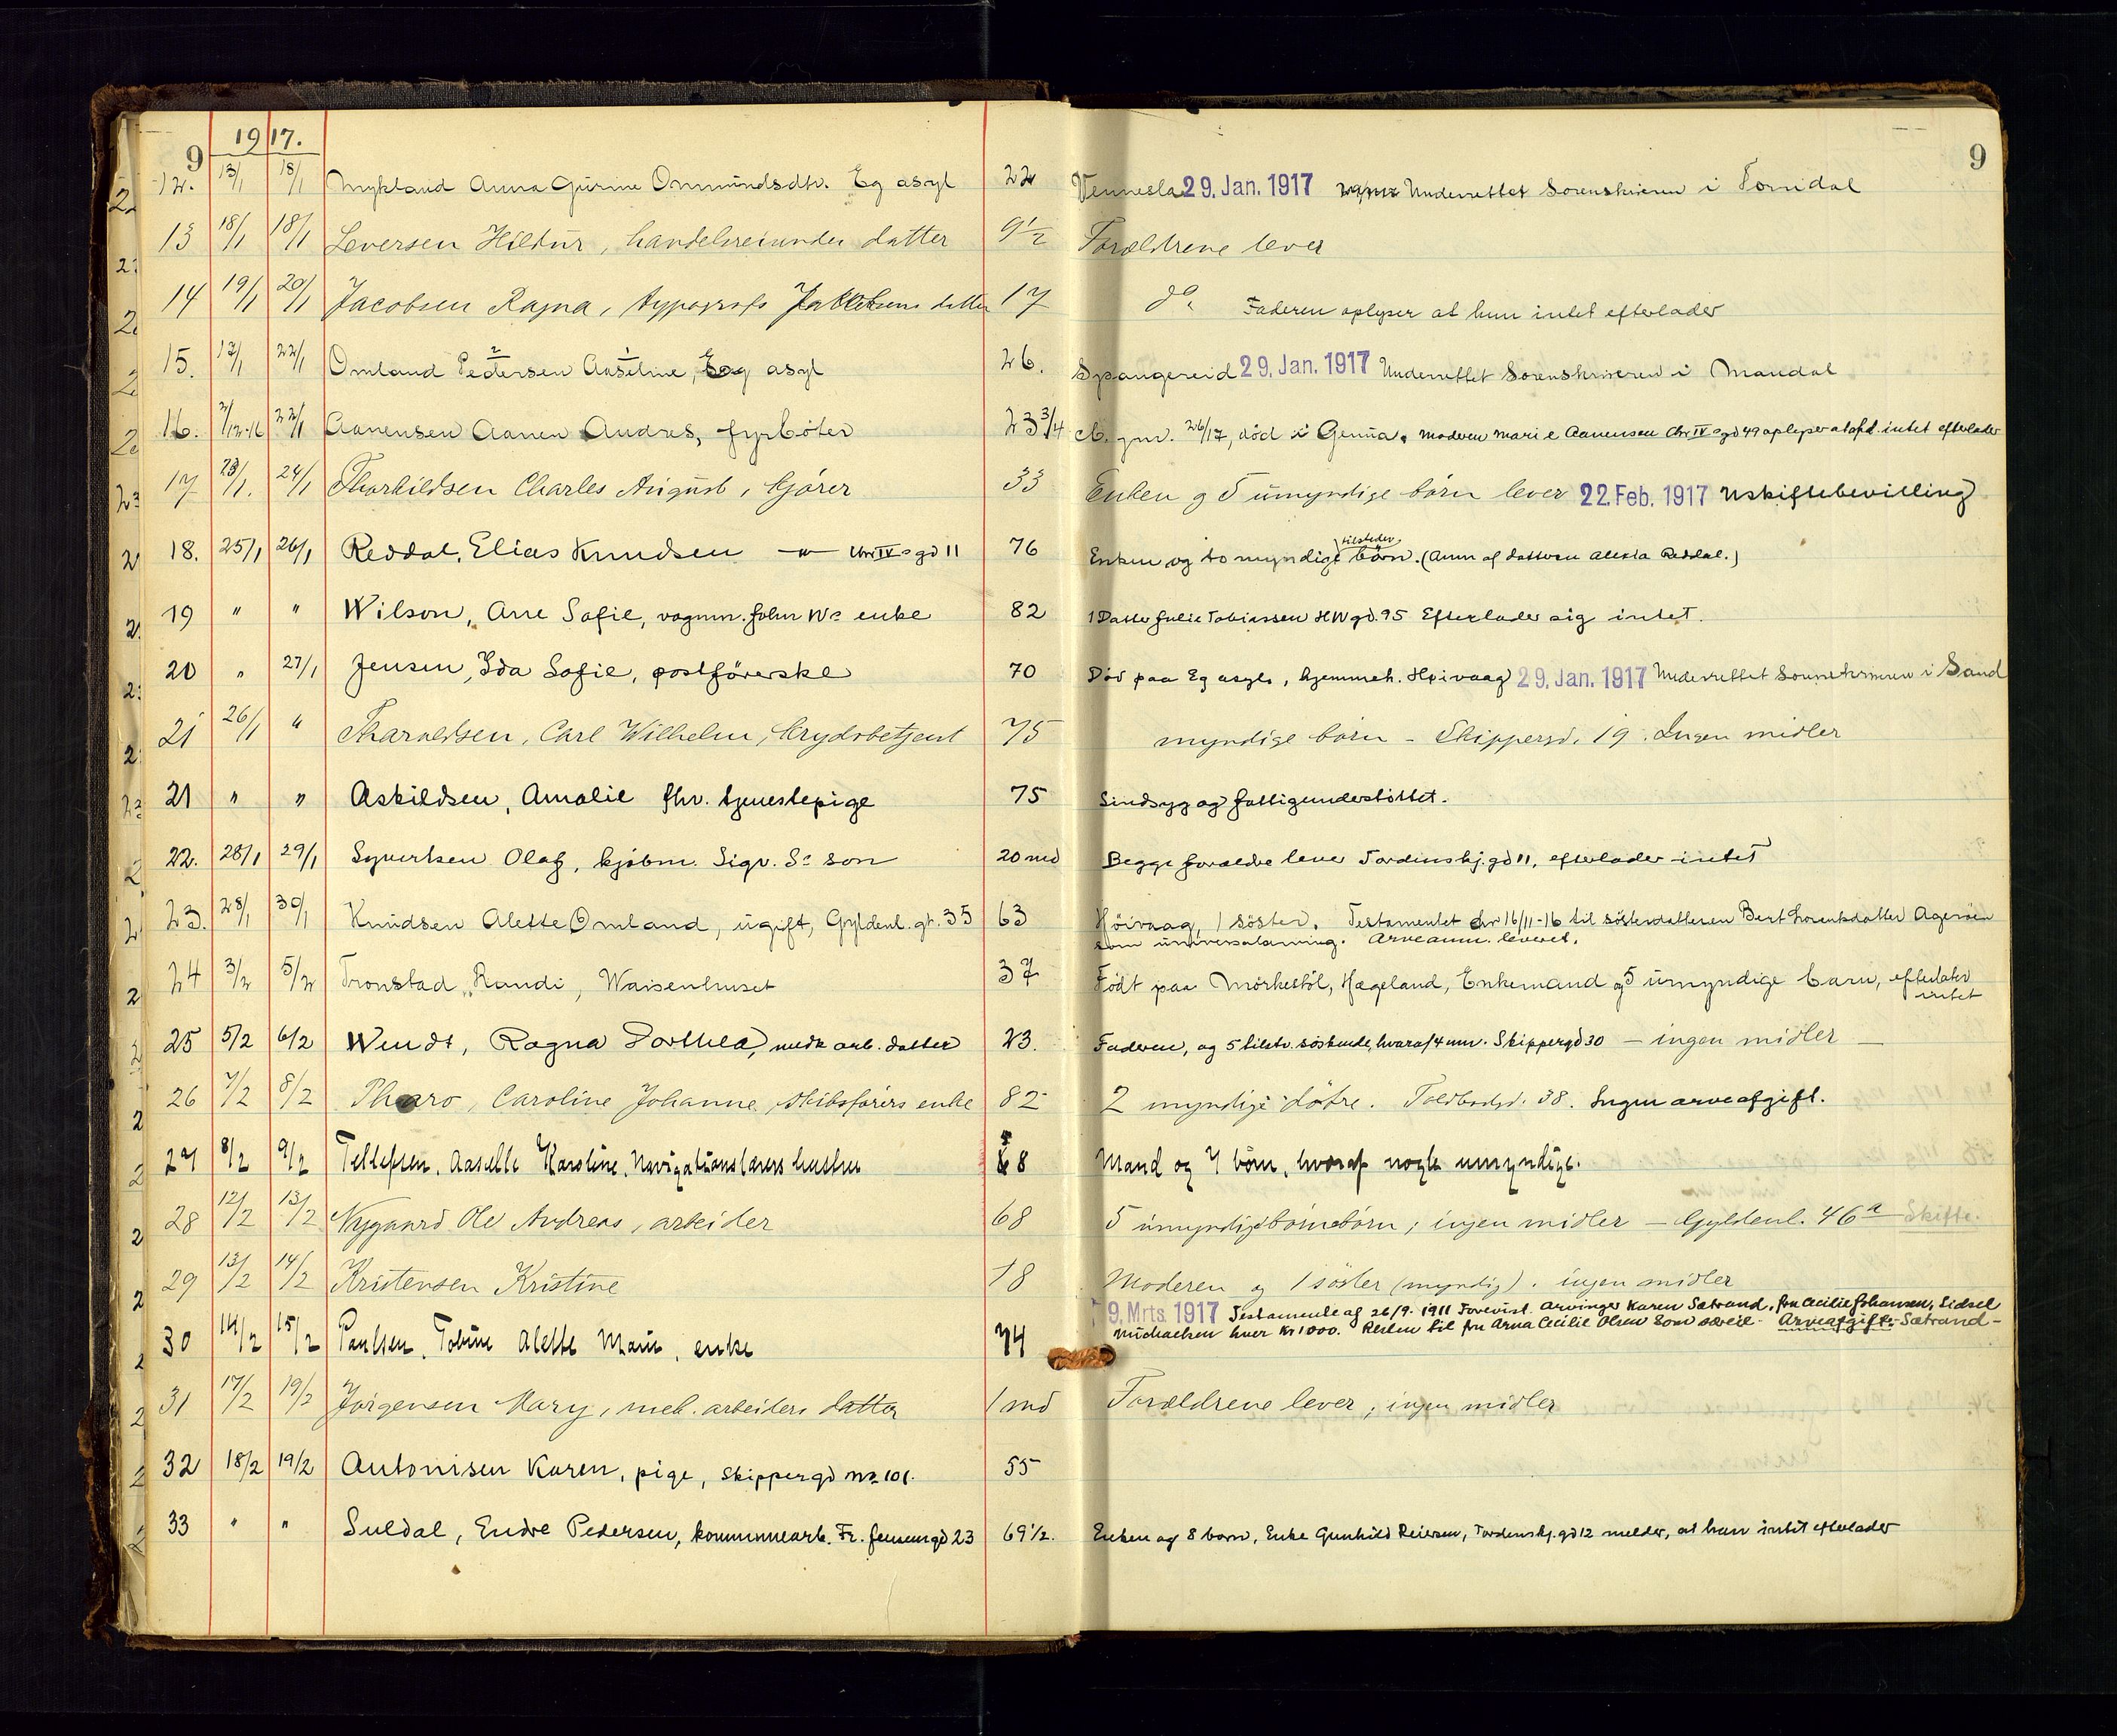 9 1917. 9
12. 13/1 18/1 Mykland Anna Gurine Ommundsdtr. Eg asyl 22 Vennesla 29. Jan. 1917 Underrettet Sorenskriveren i Torridal
13 18/1 18/1 Leversen Hildur, handelsreisendes datter 9 1/2 Forældrene lever
14 19/1 20/1 Jacobsen Ragna, typografs Jakobsens datter 17 do. Faderen oplyser at hun intet efterlader
15. 17/1 22/1 Omland Pedersen Aaseline, Eg asyl 26. Spangereid 29. Jan. 1917 Underrettet Sorenskriveren i Mandal
16. 7/12-16 22/1 Aanensen Aanen Andres, fyrböter 23 3/4 26/17, död i Genua. Moderen Marie Aanensen Chr IVs gd 49 oplyser at afd. intet efterlader
17 23/1. 24/1 Thorkildsen Charles August, kjörer 33 Enken og 5 umyndige börn lever 22. Feb. 1917 Uskiftebevilling
18. 25/1 26/1 Reddal, Elias Knudsen Chr IVs gd 11 76 Enken og to myndige tilsteder börn. (Anm af datteren Alexia Reddal.)
19 " " Wilson, Ane Sofie, vognm. John Ws enke 82 1 Datter Julie Tobiassen HW gd. 95 Efterlader sig intet.
20 " 27/1 Jensen, Ida Sofie, postförerske 70 Död paa Eg asyl, hjemmeh. Höivaag 29. Jan. 1917 Underrettet Sorenskriveren i Sand
21 26/1 " Tharaldsen, Carl Wilhelm, krydsbetjent 75 myndige börn - Skippergd. 19. Ingen midler
21 " " Askildsen, Amalie fhv. tjenestepige 75 Sindsyg og fattigunderstöttet.
22. 28/1 29/1 Syvertsen Olaf, kjöbm. Sigv. Ss sön 20 md Begge forældre lever Tordenskj. gd 11, efterlader intet
23. 28/1 30/1 Knudsen Alette Omland, ugift, Gyldenl. gt. 35 63 Höivaag, 1 söster. Testamentet dr 16/11-16 til sösterdatteren Bert Lorentsdatter Ageröen
som universalarving. Arveanm. leveret.
24 3/2 5/2 Tronstad Randi, Waisenhuset 37 Födt paa Mörkestöl, Hægeland, Enkemand og 5 umyndige barn, efterlater
intet
25 5/2 6/2 Wendt, Ragna Dorthea, mek arb. datter 23. Faderen, og 5 tilst. söskende, hvoraf 4 um. Skippergd 30 — ingen midler —
26 7/2 8/2 Tharo, Caroline Johanne, skibsförers enke 82 2 myndige döttre. Toldbodgd. 38. Ingen arveafgift.
27 8/2 9/2 Tellefsen, Aaselle Karoline, Navigationslærers hustru 58 Mand og 7 börn, hvoraf nogle umyndige.
28 12/2 13/2 Nygaard Ole Andreas, arbeider 68 5 umyndige börnebörn; ingen midler — Gyldenl. 46a Skifte.
29 13/2 14/2 Kristensen Kristine 18 Moderen og 1 söster (myndig). ingen midler
30 14/2 15/2 Paulsen, Tobine Alette Marie, enke 74 9. Mrts. 1917 Testamente af 26/9. 1911 Forevist. Arvinger Karen Sætrand, fru Cecilie Johansen, Sidsel
Michaelsen hver kr 1000. Resten til fru Anna Cecilie Olsen Arveafgift. Sætrand -
31 17/2 19/2 Jörgensen Mary, mek. arbeiders datter 1 md Forældrene lever; ingen midler
32 18/2 19/2 Antonisen Karen, pige, Skippergd No 101. 55
33 " " Suldal, Endre Pedersen, kommunearb. Fr. Jensens gd 23 69 1/2. Enken og 8 barn, Enke Gunhild Reiersen, Tordenskj. gd 12 melder, at han intet efterlader